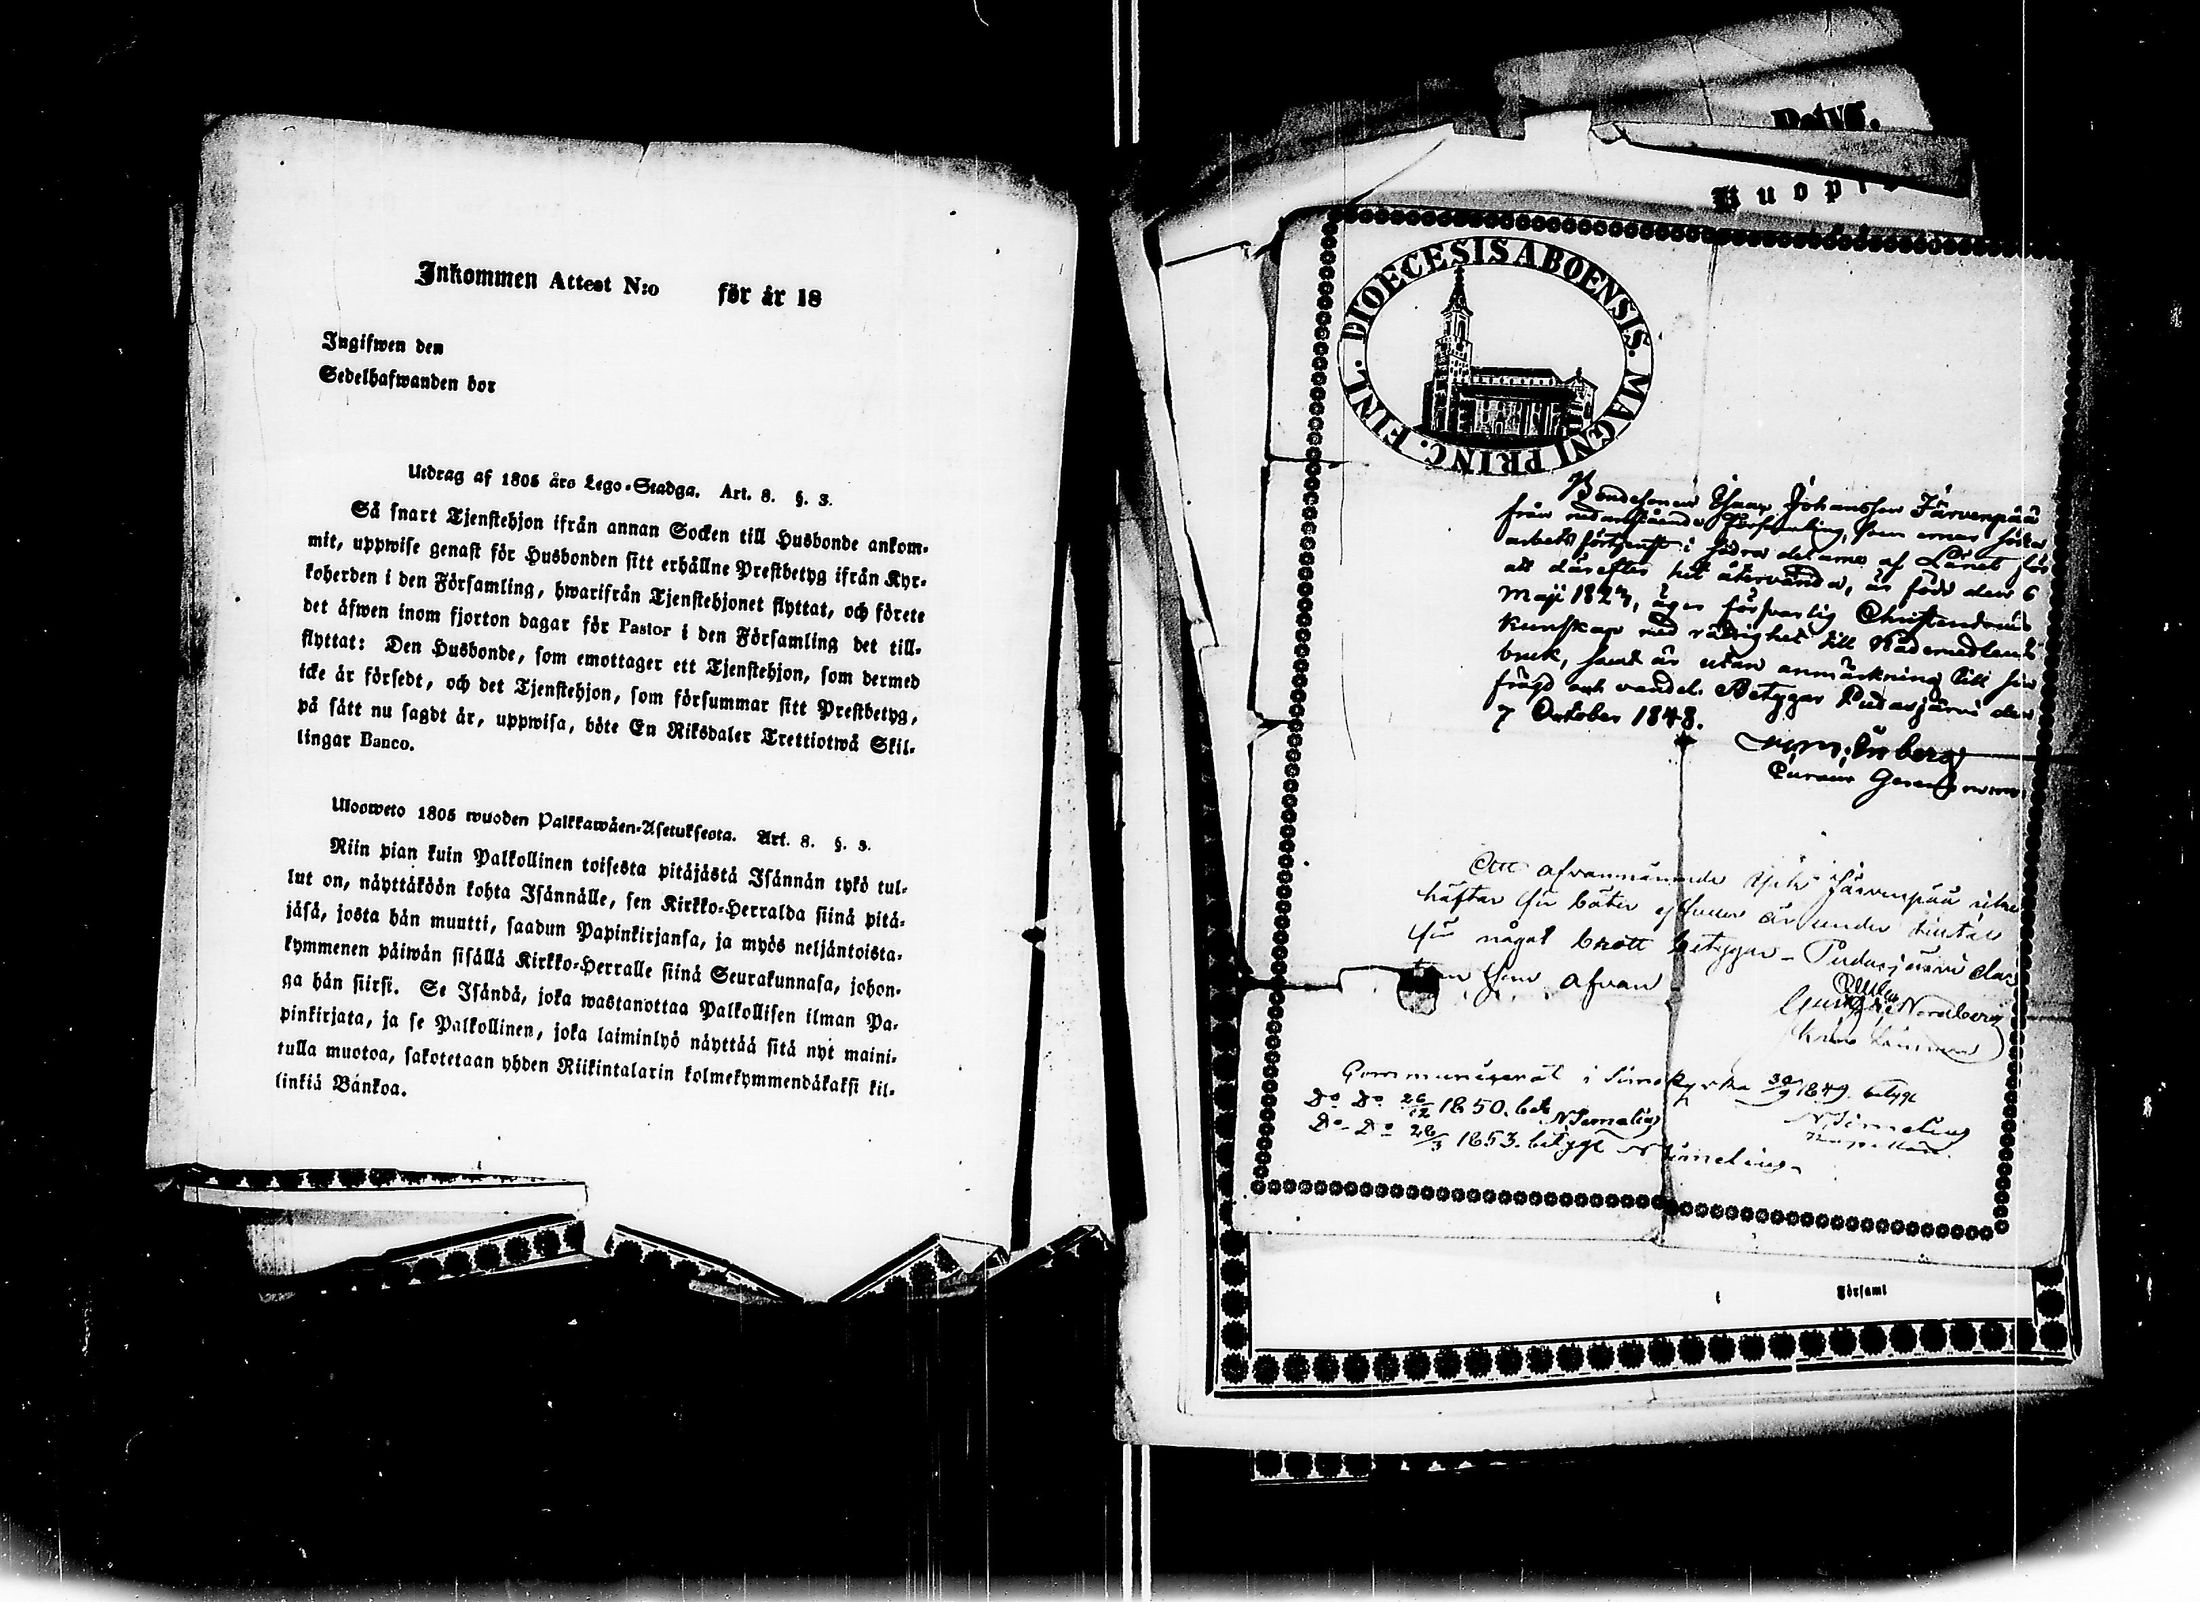 Inkommen Attest N:o för år 18
Ingifwen den
Sedelhafwanden bor
Utdrag af 1805 års Lego-Stadga. Art. 8. §. 3.
Så snart Tjenstehjon ifrån annan Socken till Husbonde ankom-
mit, uppwise genast för Husbonden sitt erhållne Prestbetyg ifrån Kyr-
koherden i den Församling, hwarifrån Tjenstehjonet flyttat, och förete
det äfwen inom fjorton dagar för Pastor i den Församling det till-
flyttat: Den Husbonde, som emottager ett Tjenstehjon, som dermed
icke är försedt, och det Tjenstehjon, som försummar sitt Prestbetyg,
på sätt nu sagdt är, uppwisa, böte En Riksdaler Trettiotwå Skil-
lingar Banco.
Uloosweto 1805 wuoden Palkkawäen-Asetuksesta. Art. 8. §. 3.
Niin pian kuin Palkollinen toisesta pitäjästä Isännän tykö tul-
lut on, näyttäköön kohta Isännälle, sen Kirkko-Herralda siinä pitä-
jäsä, josta hän muutti, saadun Papinkirjansa, ja myös neljäntoista-
kymmenen päiwän sisällä Kirkko-Herralle siinä Seurakunnasa, johon-
ga hän siirsi. Se Isändä, joka wastanottaa Palkollisen ilman Pa-
pinkirjata, ja se Palkollinen, joka laiminlyö näyttää sitä nyt maini-
tulla muotoa, sakotetaan yhden Riikintalarin kolmekymmendäkaksi kil-
linkiä Bankoa.
Betyg.
Kuopio
DIOECESIS ABOENSIS. MAGNI PRINC. FINL.
Bondesonen Isaac Johansson Järvenpää
från nedanstående Församling, som ernar söka
arbetsförtjenst i södra delarne af Länet för
att därefter hit återvända, är född den 6
Maji 1827, äger försvarlig Christendoms
kunskap med rättighet till Nådemedlens
bruk, samt är utan anmärkning till sin
frägd och vandel. Betygar Pudasjärvi den
7 October 1848.
Att afvannämnde Järvenpää icke
häftar för böter ej heller är under tiltal
för något brott betygar - Pudasjärvi
som afvan
Nordberg
Communicerat i Simo Kyrka 30/9 1849. betygar
NSimelius
Do Do 26/12 1850. bet. NSimelius
Do Do 28/3 1853. betygt NSimelius
Församl